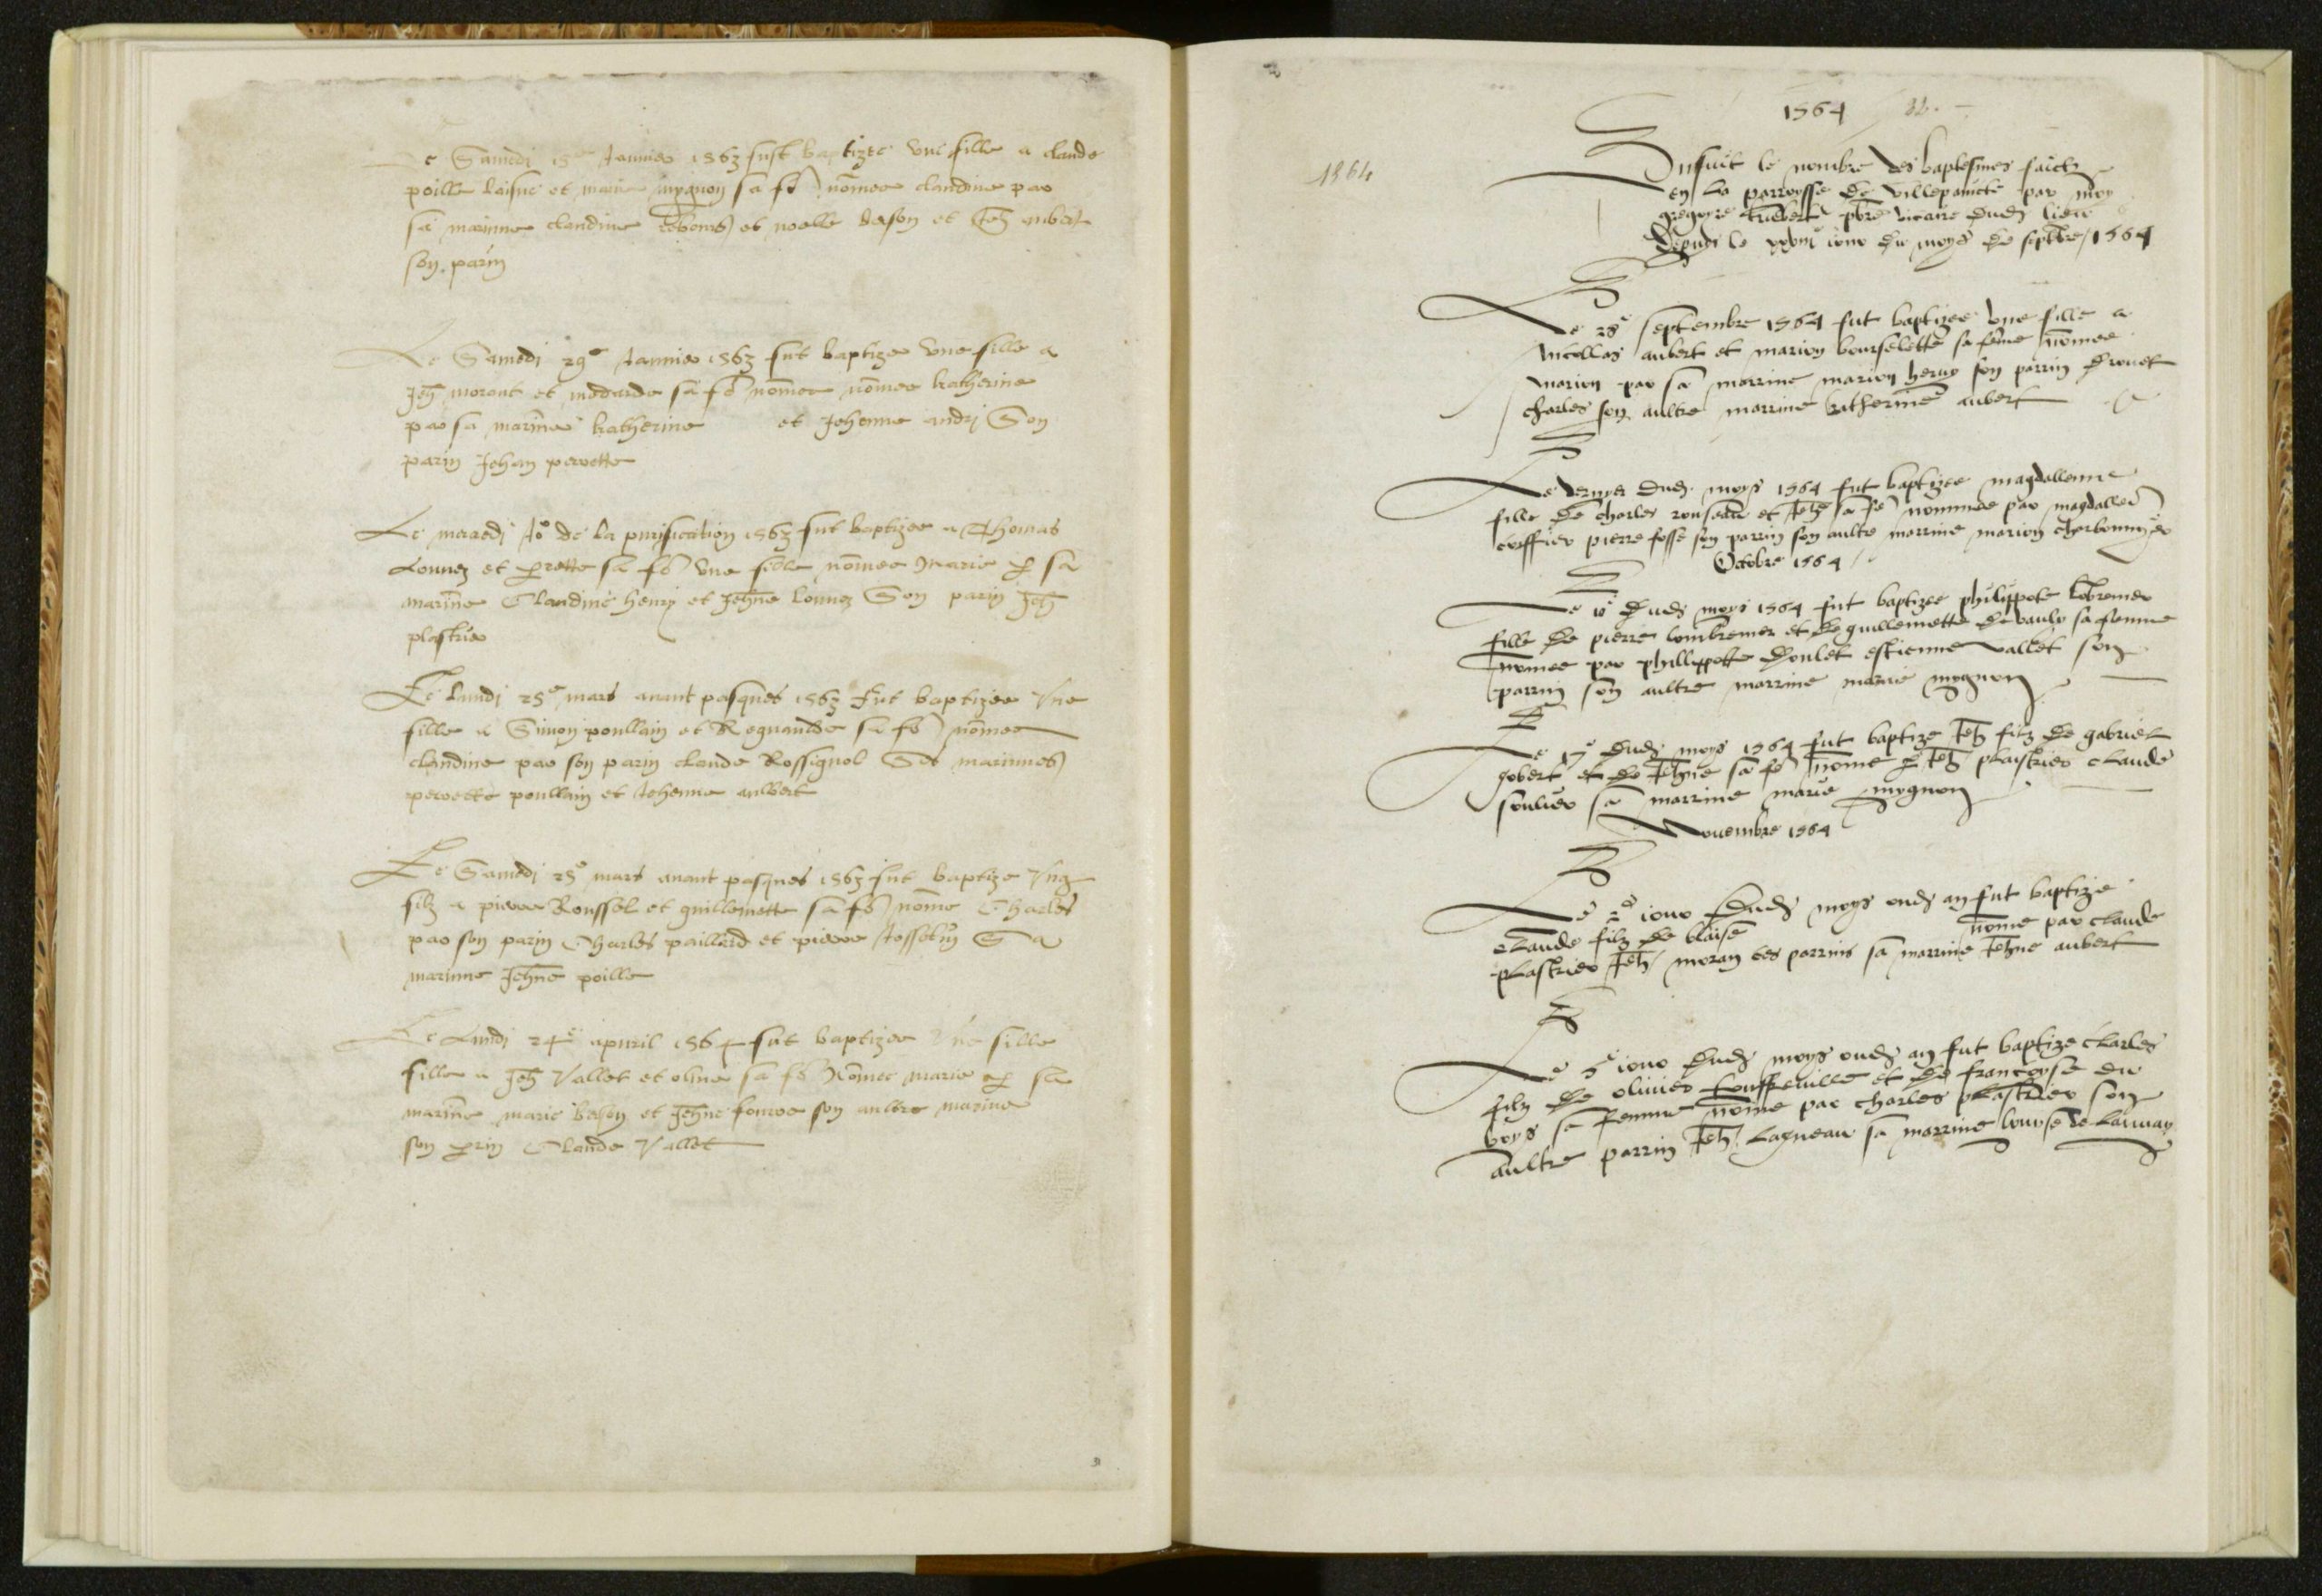 Le Samedi 15e Januier 1563 fust baptizee vne fille a claude
poille laisne et marie mygnon sa fe nōmee claudine par
sa marinne claudine et noelle Jason et Jeh aubert
son parin
Le Samedi 29e Januier 1563 fut baptizee vne fille a
Jeh morant et medarde sa fe nōmee nōmee katherine
par sa marinne katherine et Jehenne andry Son
parin Jehan perrette
Le mecredi Jo de la purification 1563 fut baptizee a Thomas
Lounez et prette sa fe vne fille nōmee Marie p sa
marine Claudine henry et Jehne lounez Son parin Jeh
plastrier
Le lundi 25e mars auant pasques 1563 Fut baptizee Vne
fille a Simon poullain et Regnaulde sa fe nōmee
claudine par son parin claude Rossignol Ses marinnes
perrette poullain et Jehenne aulbert
Le Samedi 25e mars auant pasques 1563 fut baptize Vng
filz a pierre Roussel et guillemette sa fe nōme Charles
par son parin Charles paillard et pierre Josselin Sa
marinne Jehne poille
Le Lundi 24e apuril 1564 fut baptizee Vne fille
fille a Jeh Vallet et oliue sa fe Nōmee marie p sa
marine marie bason et Jehne fourre son aultre marine
son prin Claude Vallet
1564 32.
1564
Ensuit le nombre des baptesmes faictz
en la parroysse de villepaincte par moy
gregoyre pbre vicaire dud lieu
depuis le xxviiie iour du moys de septbre 1564
Le 28e septembre 1564 fut baptizee vne fille a
nicollas aubert et marion bourselette sa fēme nōmee
marion par sa marrine marion heruy son parrin drouet
charles son aultre marrine katherine aubert
Le dernier dud moys 1564 fut baptizee magdallenne
fille de charles rouseau et Jehe sa fe nommee par magdallē
coiffier pierre fosse son parrin son aultre marrine marion charbonnyer
Octobre 1564
Le 10e dud moys 1564 fut baptizee philippote lōbremer
fille de pierre lombremer et de guillemette de vaulx sa femme
nōmee par phillippotte doulet estienne vallet son
parrin son aultre marrine marie mygnon
Le 17e dud moys 1564 fut baptize Jeh filz de gabriel
gobert et de Jehne sa fe nōme p Jeh plaistrier claude
soulier sa marrine marie mygnon
Nouembre 1564
Le 2e iour dud moys oud an fut baptize
claude filz de blaise nōme par claude
plastrier Jeh moran ses parrins sa marrine Jehne aubert
Le 5e iour dud moys oud an fut baptize charles
filz de oliuier touffreuille et de francoyse du
boys sa femme nōme par charles plastrier son
aultre parrin Jeh lagneau sa marrine louyse de launay